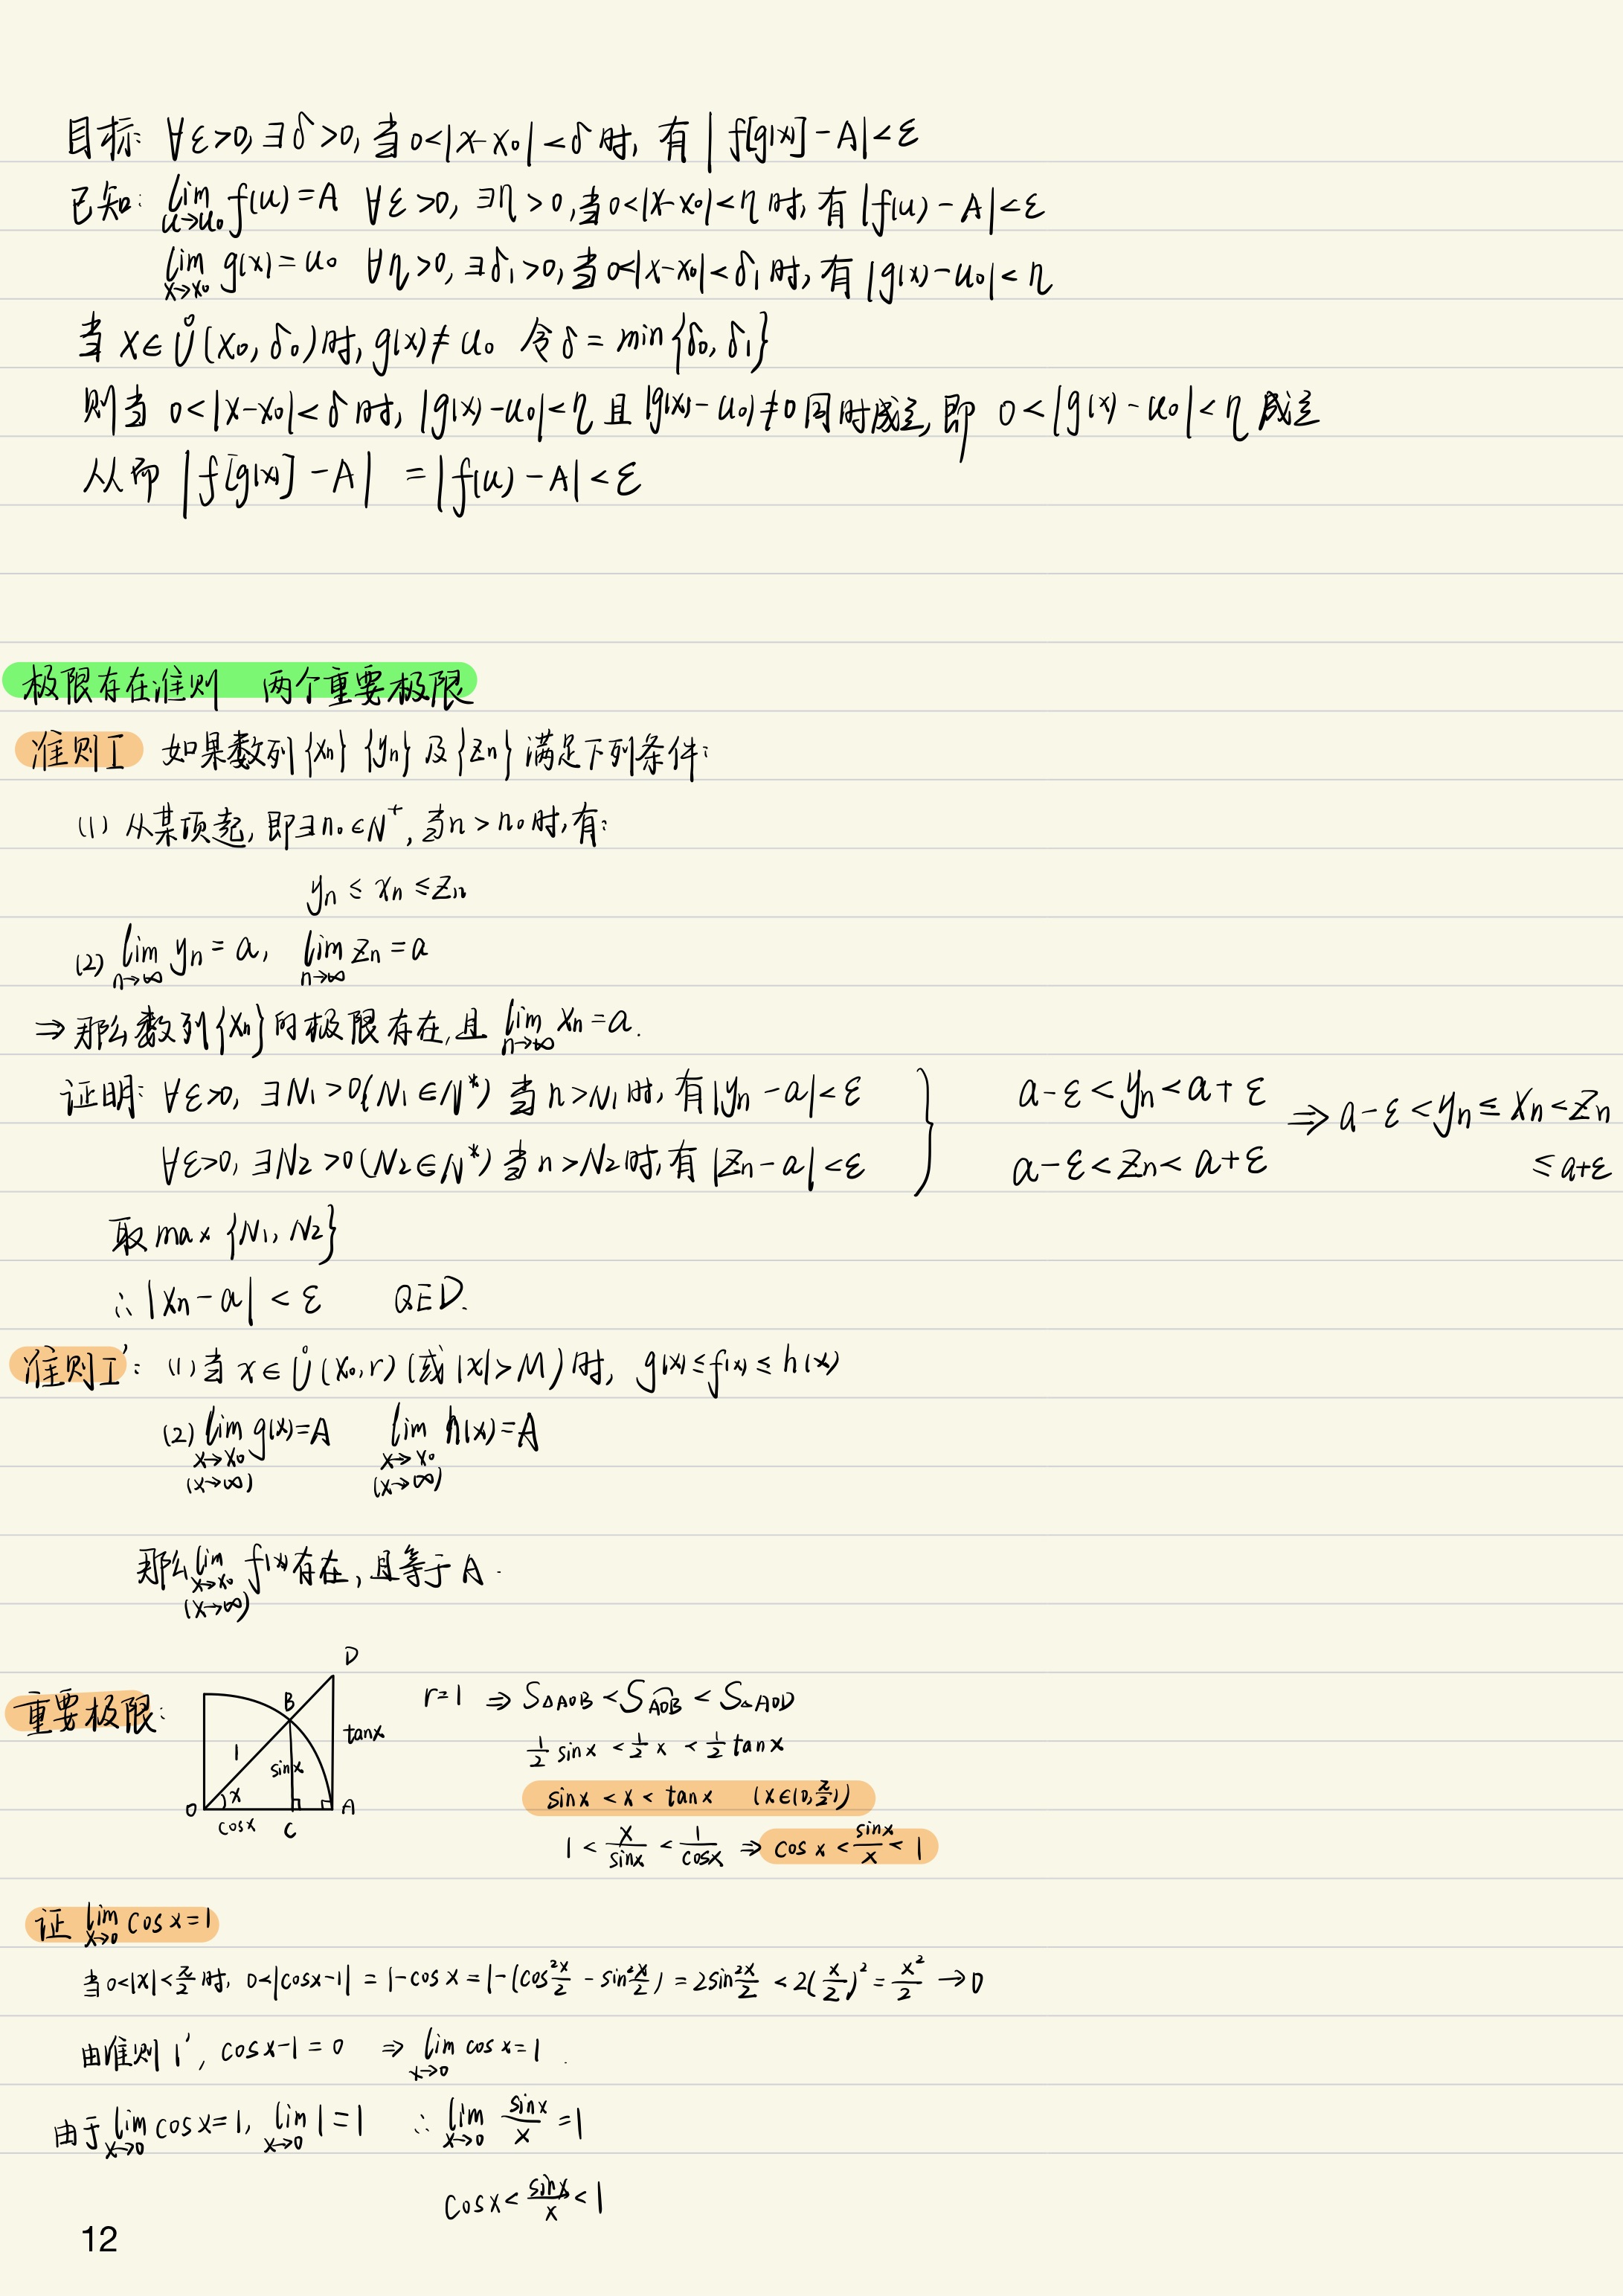 目标: ∀ε>0, ∃δ>0, 当0<|x-x₀|<δ时, 有|f[g(x)]-A|<ε
已知: lim_{u→u₀} f(u)=A ∀ε>0, ∃η>0, 当0<|x-x₀|<η时, 有|f(u)-A|<ε
lim_{x→x₀} g(x)=u₀ ∀η>0, ∃δ₁>0, 当0<|x-x₀|<δ₁时, 有|g(x)-u₀|<η
当 x∈Ů(x₀, δ₀)时, g(x)≠u₀ 令δ=min{δ₀, δ₁}
则当 0<|x-x₀|<δ时, |g(x)-u₀|<η 且 |g(x)-u₀|≠0同时成立, 即 0<|g(x)-u₀|<η成立
从而 |f[g(x)]-A| =|f(u)-A|<ε
极限存在准则 两个重要极限
准则I 如果数列{xₙ} {yₙ} 及{zₙ} 满足下列条件:
(1) 从某项起, 即∃n₀∈N⁺, 当n>n₀时, 有:
yₙ ≤ xₙ ≤ zₙ
(2) lim_{n→∞} yₙ=a, lim_{n→∞} zₙ=a
⇒ 那么数列{xₙ}的极限存在, 且 lim_{n→∞} xₙ=a.
证明: ∀ε>0, ∃N₁>0(N₁∈N*) 当n>N₁时, 有|yₙ-a|<ε } a-ε<yₙ<a+ε ⇒ a-ε<yₙ≤xₙ<zₙ
∀ε>0, ∃N₂>0(N₂∈N*) 当n>N₂时, 有|zₙ-a|<ε a-ε<zₙ<a+ε ≤a+ε
取max{N₁, N₂}
∴|xₙ-a|<ε QED.
准则I': (1)当 x∈Ů(x₀,r) (或|x|>M)时, g(x)≤f(x)≤h(x)
(2) lim_{x→x₀ (x→∞)} g(x)=A lim_{x→x₀ (x→∞)} h(x)=A
那么 lim_{x→x₀ (x→∞)} f(x)存在, 且等于A.
重要极限:
D
B
1
sinx
tanx
O
x
A
cosx
C
r=1 ⇒ S△AOB < S⌒AOB < S△AOD
½sinx < ½x < ½tanx
sinx < x < tanx (x∈(0,π/2))
1 < x/sinx < 1/cosx ⇒ cosx < sinx/x < 1
证 lim_{x→0} cosx=1
当0<|x|<π/2时, 0<|cosx-1| = 1-cosx = 1-(cos²x/2 - sin²x/2) = 2sin²x/2 < 2(x/2)² = x²/2 → 0
由准则1', cosx-1=0 ⇒ lim_{x→0} cosx=1.
由于 lim_{x→0} cosx=1, lim_{x→0} 1=1 ∴ lim_{x→0} sinx/x =1
cosx < sinx/x < 1
12